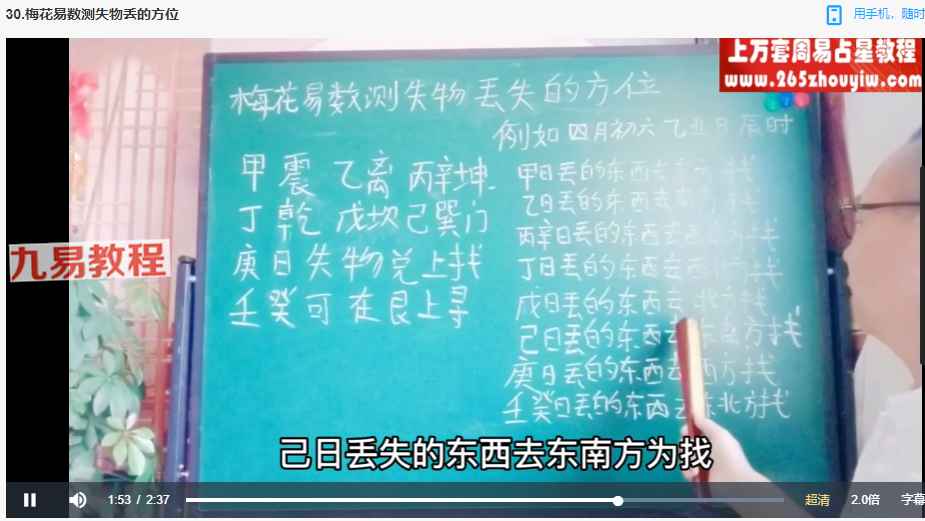 30.梅花易数测失物丢的方位
用手机，随时
上万套周易占星教程
www.265zhouyiw.com
梅花易数测失物丢失的方位
例如四月初六乙丑日辰时
甲震 乙离 丙辛坤
丁乾 戊坎己巽门
庚日失物兑上找
壬癸可在艮上寻
甲日丢的东西去东方找
乙日丢的东西去南方找
丙辛日丢的东西去西南方找
丁日丢的东西去西北方找
戊日丢的东西去北方找
己日丢的东西去东南方找
庚日丢的东西去西方找
壬癸日丢的东西去东北方找
九易教程
己日丢失的东西去东南方为找
1:53 / 2:37
超清
2.0倍
字幕